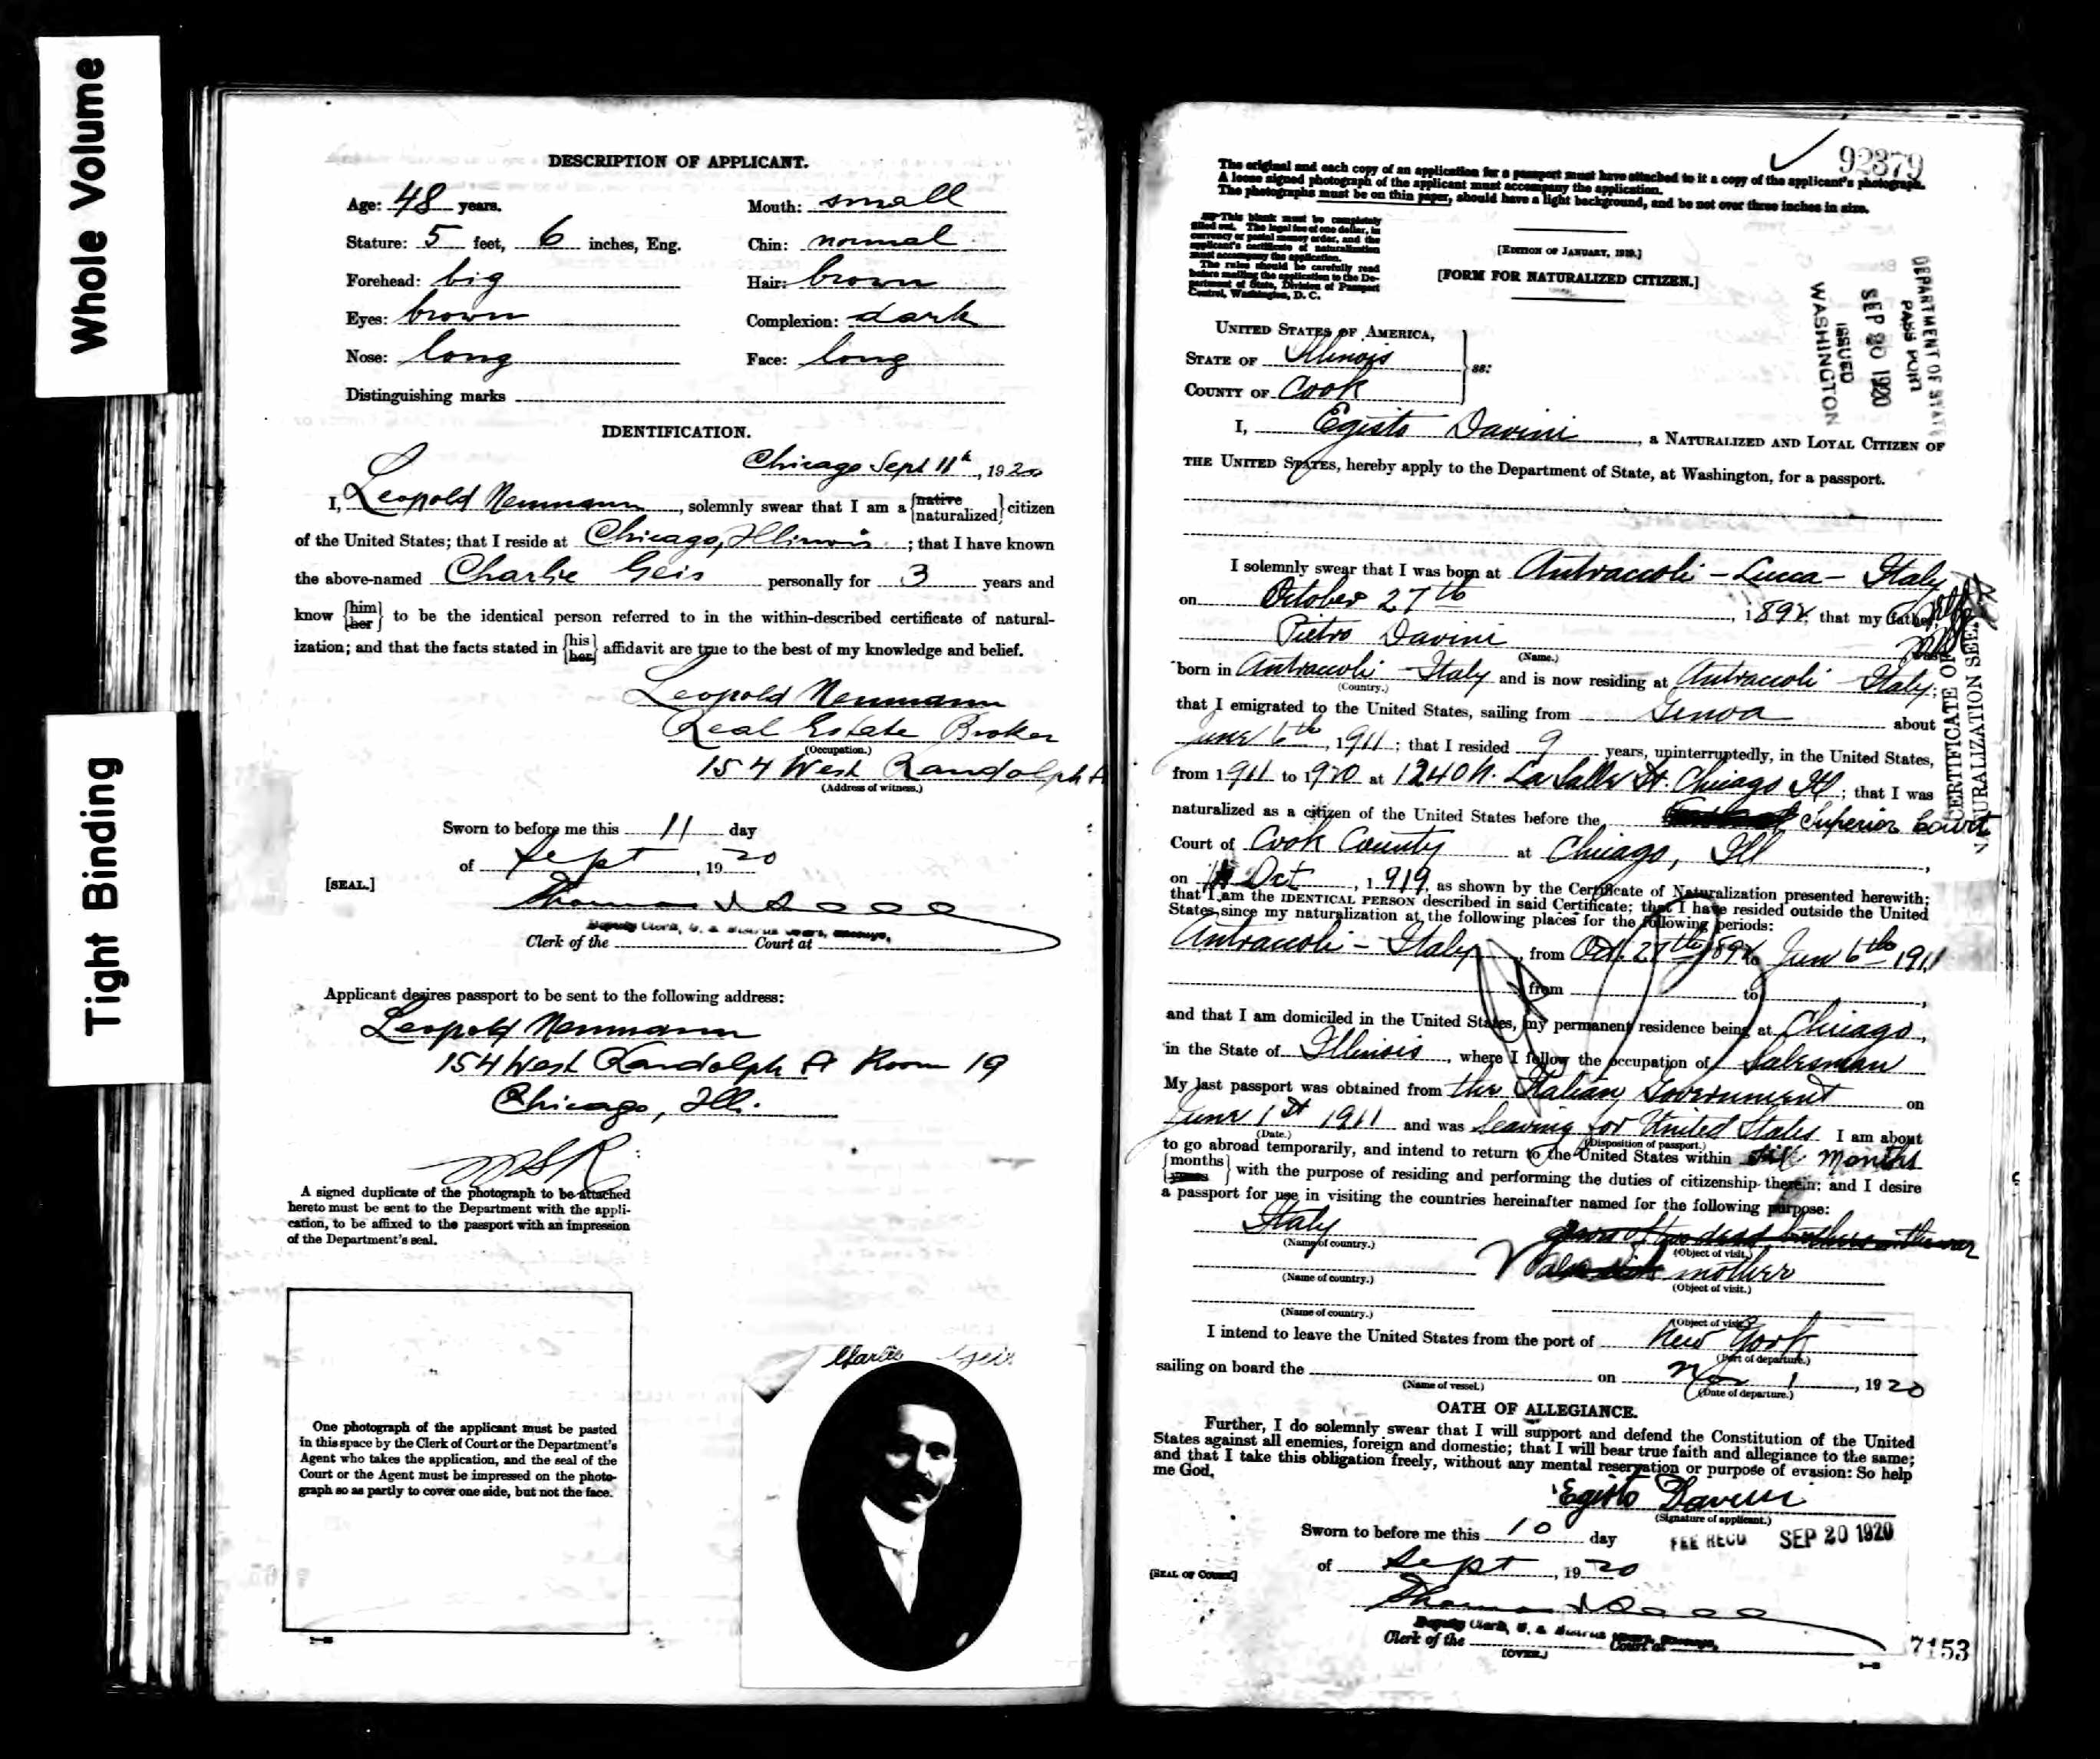 Whole Volume
Tight Binding
DESCRIPTION OF APPLICANT.
Age: 48 years.
Mouth: small
Stature: 5 feet, 6 inches, Eng.
Chin: normal
Forehead: big
Hair: brown
Eyes: brown
Complexion: dark
Nose: long
Face: long
Distinguishing marks
IDENTIFICATION.
Chicago Sept 11th, 1920
I, Leopold Neumann, solemnly swear that I am a {native naturalized} citizen
of the United States; that I reside at Chicago, Illinois; that I have known
the above-named Charlie Geis personally for 3 years and
know {him her} to be the identical person referred to in the within-described certificate of natural-
ization; and that the facts stated in {his her} affidavit are true to the best of my knowledge and belief.
Leopold Neumann
Real Estate Broker
(Occupation.)
154 West Randolph
(Address of witness.)
Sworn to before me this 11 day
of Sept, 1920
[SEAL.]
Clerk of the Court at
Applicant desires passport to be sent to the following address:
Leopold Neumann
154 West Randolph St Room 19
Chicago, Ill.
A signed duplicate of the photograph to be attached
hereto must be sent to the Department with the appli-
cation, to be affixed to the passport with an impression
of the Department's seal.
One photograph of the applicant must be pasted
in this space by the Clerk of Court or the Department's
Agent who takes the application, and the seal of the
Court or the Agent must be impressed on the photo-
graph so as partly to cover one side, but not the face.
Charlie Geis
92379
The original and each copy of an application for a passport must have attached to it a copy of the applicant's photograph.
A loose signed photograph of the applicant must accompany the application.
The photographs must be on thin paper, should have a light background, and be not over three inches in size.
This blank must be completely
filled out. The legal fee of one dollar, in
currency or postal money order, and the
applicant's certificate of naturalization
must accompany the application.
The rules should be carefully read
before mailing the application to the De-
partment of State, Division of Passport
Control, Washington, D. C.
[EDITION OF JANUARY, 1919.]
[FORM FOR NATURALIZED CITIZEN.]
DEPARTMENT OF STATE
PASSPORT
SEP 20 1920
ISSUED
WASHINGTON
UNITED STATES OF AMERICA,
STATE OF Illinois
ss:
COUNTY OF Cook
I, Egisto Davini, a NATURALIZED AND LOYAL CITIZEN OF
THE UNITED STATES, hereby apply to the Department of State, at Washington, for a passport.
I solemnly swear that I was born at Antraccoli - Lucca - Italy
on October 27th, 1892, that my father
Pietro Davini
(Name.)
was
born in Antraccoli - Italy and is now residing at Antraccoli - Italy;
(Country.)
that I emigrated to the United States, sailing from Genoa about
June 6th, 1911; that I resided 9 years, uninterruptedly, in the United States,
from 1911 to 1920 at 1240 N. La Salle St. Chicago Ill; that I was
naturalized as a citizen of the United States before the Superior Court
Court of Cook County at Chicago, Ill,
on Oct, 1919, as shown by the Certificate of Naturalization presented herewith;
that I am the IDENTICAL PERSON described in said Certificate; that I have resided outside the United
States since my naturalization at the following places for the following periods:
Antraccoli - Italy, from Oct. 27th 1892 to Jun 6th 1911
from to
and that I am domiciled in the United States, my permanent residence being at Chicago,
in the State of Illinois, where I follow the occupation of Salesman
My last passport was obtained from the Italian Government on
June 1st 1911 and was leaving for United States I am about
(Date.) (Disposition of passport.)
to go abroad temporarily, and intend to return to the United States within six months
{months years} with the purpose of residing and performing the duties of citizenship therein; and I desire
a passport for use in visiting the countries hereinafter named for the following purpose:
Italy
(Name of country.) (Object of visit.)
mother
(Name of country.) (Object of visit.)
(Name of country.) (Object of visit.)
I intend to leave the United States from the port of New York
(Port of departure.)
sailing on board the on Nov 1, 1920
(Name of vessel.) (Date of departure.)
OATH OF ALLEGIANCE.
Further, I do solemnly swear that I will support and defend the Constitution of the United
States against all enemies, foreign and domestic; that I will bear true faith and allegiance to the same;
and that I take this obligation freely, without any mental reservation or purpose of evasion: So help
me God.
Egisto Davini
(Signature of applicant.)
Sworn to before me this 10 day
FEE RECD SEP 20 1920
of Sept, 1920
[SEAL OF COURT]
Clerk of the Court at
[OVER.]
7153
CERTIFICATE OF
NATURALIZATION SEEN